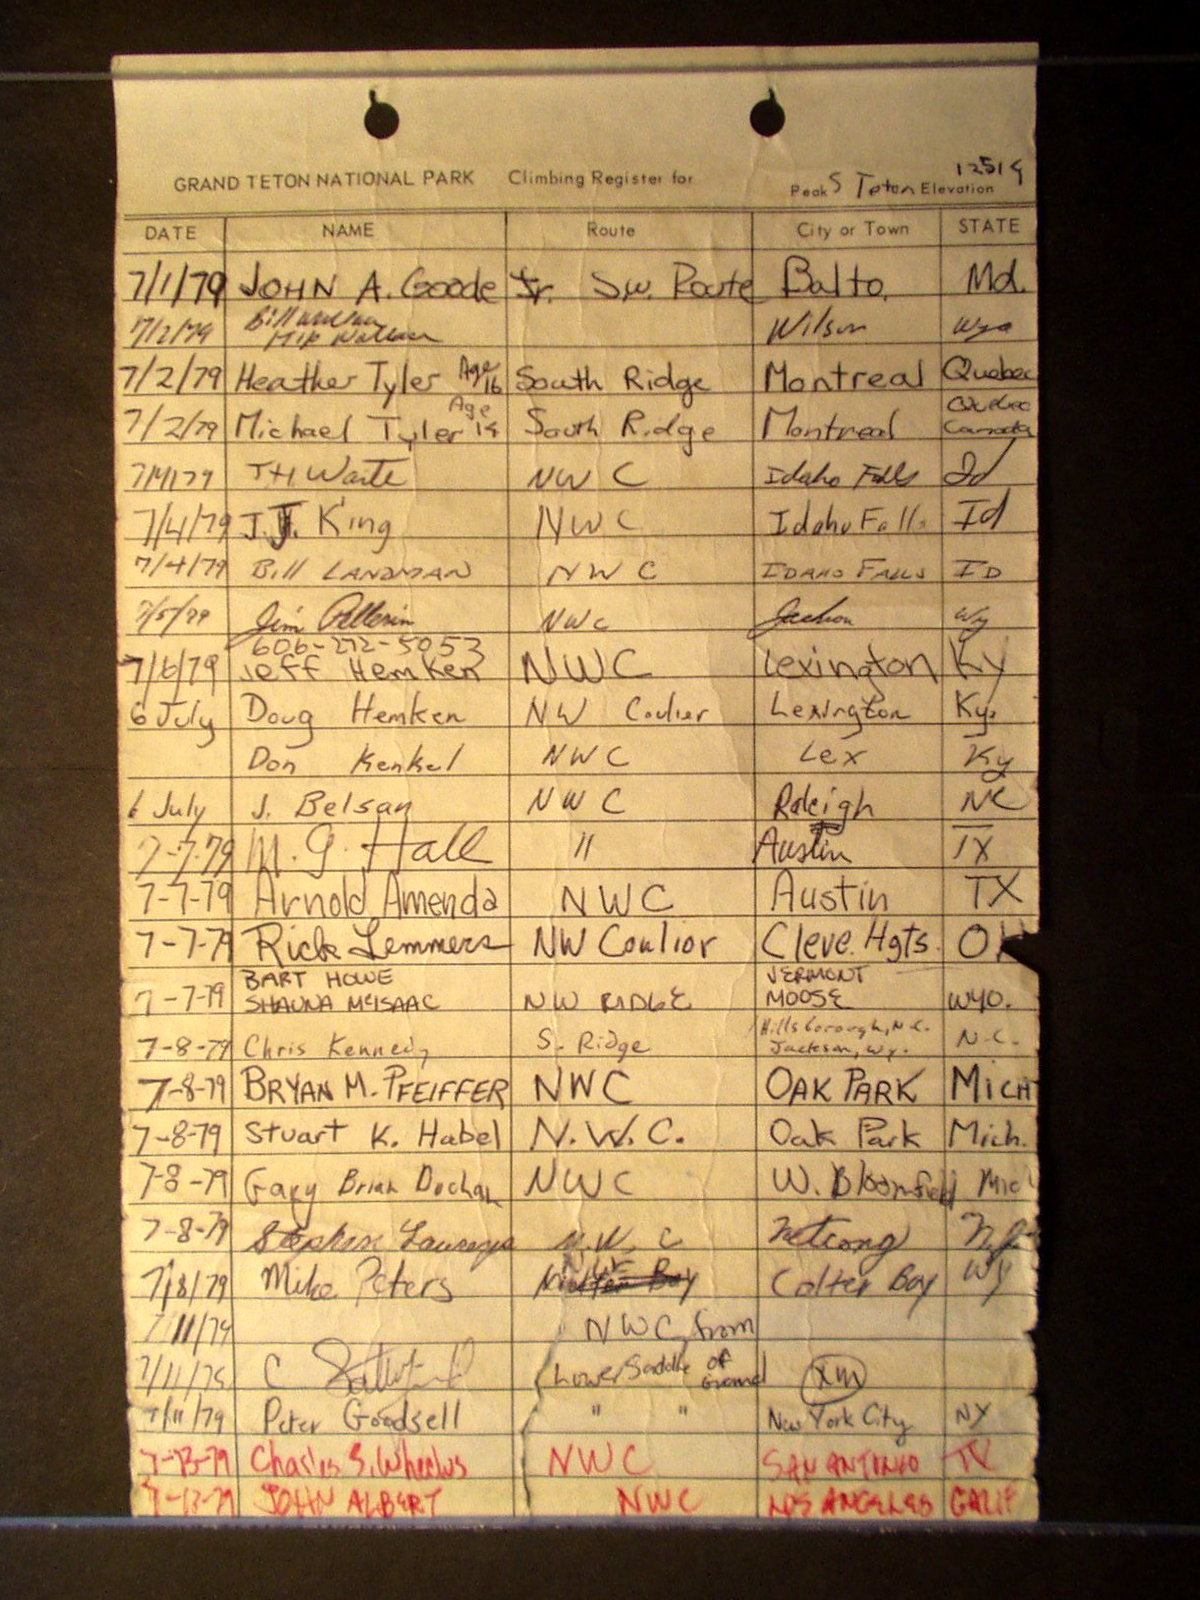 GRAND TETON NATIONAL PARK Climbing Register for Peak S Teton Elevation 12514
DATE NAME Route City or Town STATE
7/1/79 JOHN A. Goode Jr. S.W. Route Balto. Md.
7/2/79 Bill Wilson Wyo
7/2/79 Heather Tyler Age 16 South Ridge Montreal Quebec
7/2/79 Michael Tyler Age 14 South Ridge Montreal Quebec Canada
7/4/79 TH Waite NWC Idaho Falls Id
7/4/79 J.J. King NWC Idaho Falls Id
7/4/79 Bill LANDMAN NWC IDAHO FALLS ID
7/5/79 Jim NWC Jackson Wy
606-272-5053
7/6/79 Jeff Hemken NWC Lexington Ky
6 July Doug Hemken NW Coulier Lexington Ky.
Don Kenkel NWC Lex Ky
6 July J. Belsan NWC Raleigh NC
7-7-79 M. G. Hall " Austin TX
7-7-79 Arnold Amenda NWC Austin TX
7-7-79 Rick Lemmers NW Coulior Cleve. Hgts. OH
BART HOWE VERMONT
7-7-79 SHAUNA McISAAC NW RIDGE MOOSE WYO.
Hillsborough, N.C.
7-8-79 Chris Kennedy S. Ridge Jackson, Wy. N.C.
7-8-79 BRYAN M. PFEIFFER NWC OAK PARK MICH
7-8-79 Stuart K. Habel N.W.C. Oak Park Mich.
7-8-79 Gary Brian Dochan NWC W. Bloomfield Mic
7-8-79 Stephen N.W.C Netcong N.J.
7/8/79 Mike Peters Colter Bay Wy
7/11/79 NWC from
7/11/79 C Lower Saddle of Grand
7/11/79 Peter Goodsell " " New York City NY
7-13-79 Charles S. Wheelus NWC SAN ANTONIO TX
7-13-79 JOHN ALBERT NWC LOS ANGELES CALIF